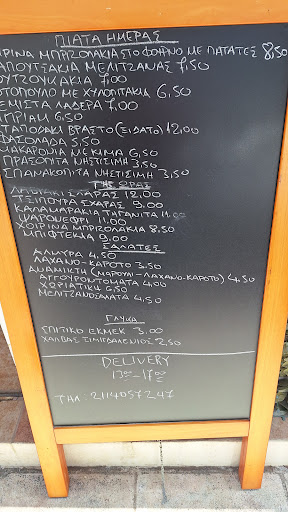 ΠΙΑΤΑ ΗΜΕΡΑΣ
ΙΡΙΝΑ ΜΠΡΙΖΟΛΑΚΙΑ ΣΤΟ ΦΟΥΡΝΟ ΜΕ ΠΑΤΑΤΕΣ 8,50
ΑΠΟΥΤΣΑΚΙΑ ΜΕΛΙΤΖΑΝΑΣ 7,50
ΟΥΤΖΟΥΚΑΚΙΑ 7,00
ΟΤΟΠΟΥΛΟ ΜΕ ΧΥΛΟΠΙΤΑΚΙΑ 6,50
ΕΜΙΣΤΑ ΛΑΔΕΡΑ 7,00
ΠΡΙΑΜ 6,50
ΤΑΠΟΔΑΚΙ ΒΡΑΣΤΟ (ΞΙΔΑΤΟ) 12,00
ΦΑΣΟΛΑΔΑ 5,50
ΜΑΚΑΡΟΝΙΑ ΜΕ ΚΙΜΑ 6,50
ΠΡΑΣΟΠΙΤΑ ΝΗΣΤΙΣΙΜΗ 3,50
ΣΠΑΝΑΚΟΠΙΤΑ ΝΗΣΤΙΣΙΜΗ 3,50
ΤΗΣ ΩΡΑΣ
ΣΧΑΡΑΣ 12,00
ΤΣΙΠΟΥΡΑ ΣΧΑΡΑΣ 9,00
ΚΑΛΑΜΑΡΑΚΙΑ ΤΗΓΑΝΙΤΑ 11,00
ΨΑΡΟΝΕΦΡΙ 11,00
ΧΟΙΡΙΝΑ ΜΠΡΙΖΟΛΑΚΙΑ 8,50
ΜΠΙΦΤΕΚΙΑ 9,00
ΣΑΛΑΤΕΣ
ΑΛΜΥΡΑ 4,50
ΛΑΧΑΝΟ-ΚΑΡΟΤΟ 3,50
ΑΝΑΜΙΚΤΗ (ΜΑΡΟΥΛΙ-ΛΑΧΑΝΟ-ΚΑΡΟΤΟ) 4,50
ΑΓΓΟΥΡΟΝΤΟΜΑΤΑ 4,00
ΧΩΡΙΑΤΙΚΗ 6,50
ΜΕΛΙΤΖΑΝΟΣΑΛΑΤΑ 4,50
ΓΛΥΚΑ
ΣΠΙΤΙΚΟ ΕΚΜΕΚ 3,00
ΧΑΛΒΑΣ ΣΙΜΙΓΔΑΛΕΝΙΟΣ 2,50
DELIVERY
13:00-17:00
ΤΗΛ: 2114057247